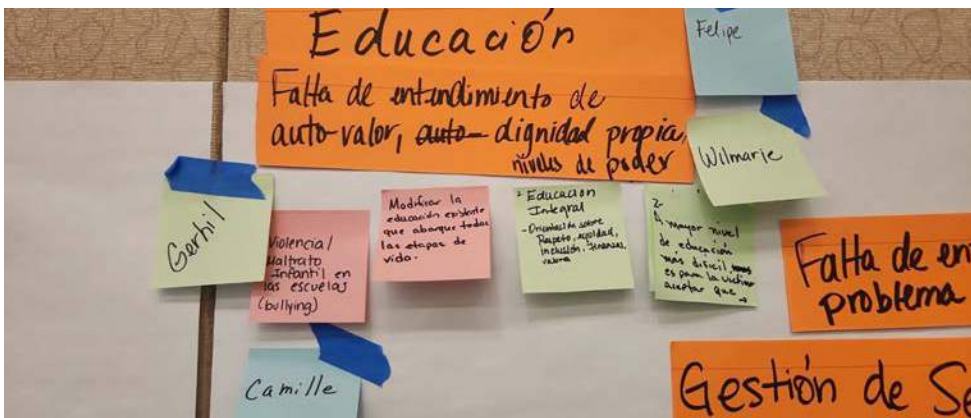 Educación
Falta de entendimiento de
auto-valor, auto- dignidad propia,
niveles de poder
Felipe
Wilmarie
Gerhil
Violencia/
Maltrato
Infantil en
las escuelas
(bullying)
Modificar la
educación existente
que abarque todas
las etapas de
vida.
2. Educacion
Integral
- Orientación sobre
Respeto, equidad,
inclusión, finanzas,
valores
2-
mayor nivel
de educación
más dificil
es para la victima
aceptar que →
Camille
Falta de en
problema
Gestión de Se